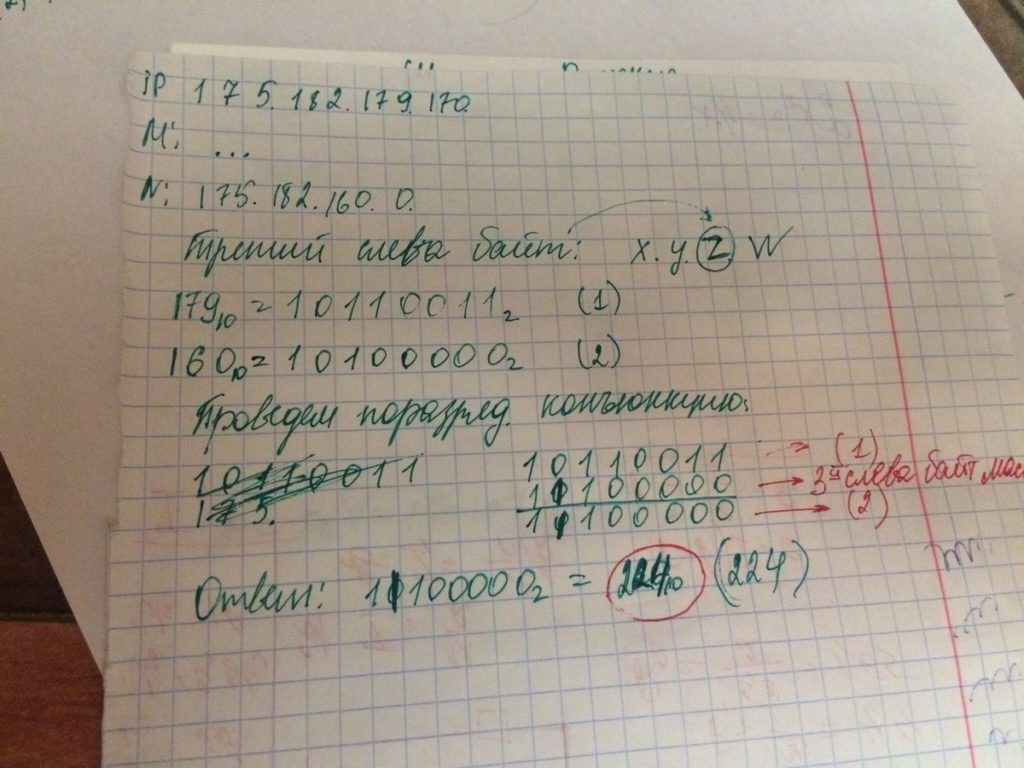 IP 175.182.179.170.
М: ...
N: 175.182.160.0.
Третий слева байт: x.y.Z W
179₁₀ = 10110011₂ (1)
160₁₀ = 10100000₂ (2)
Проведем поразряд. конъюнкцию:
10110011
10110011 → (1)
11100000 → 3й слева байт мас
11100000 → (2)
Ответ: 11100000₂ = 224₁₀ (224)